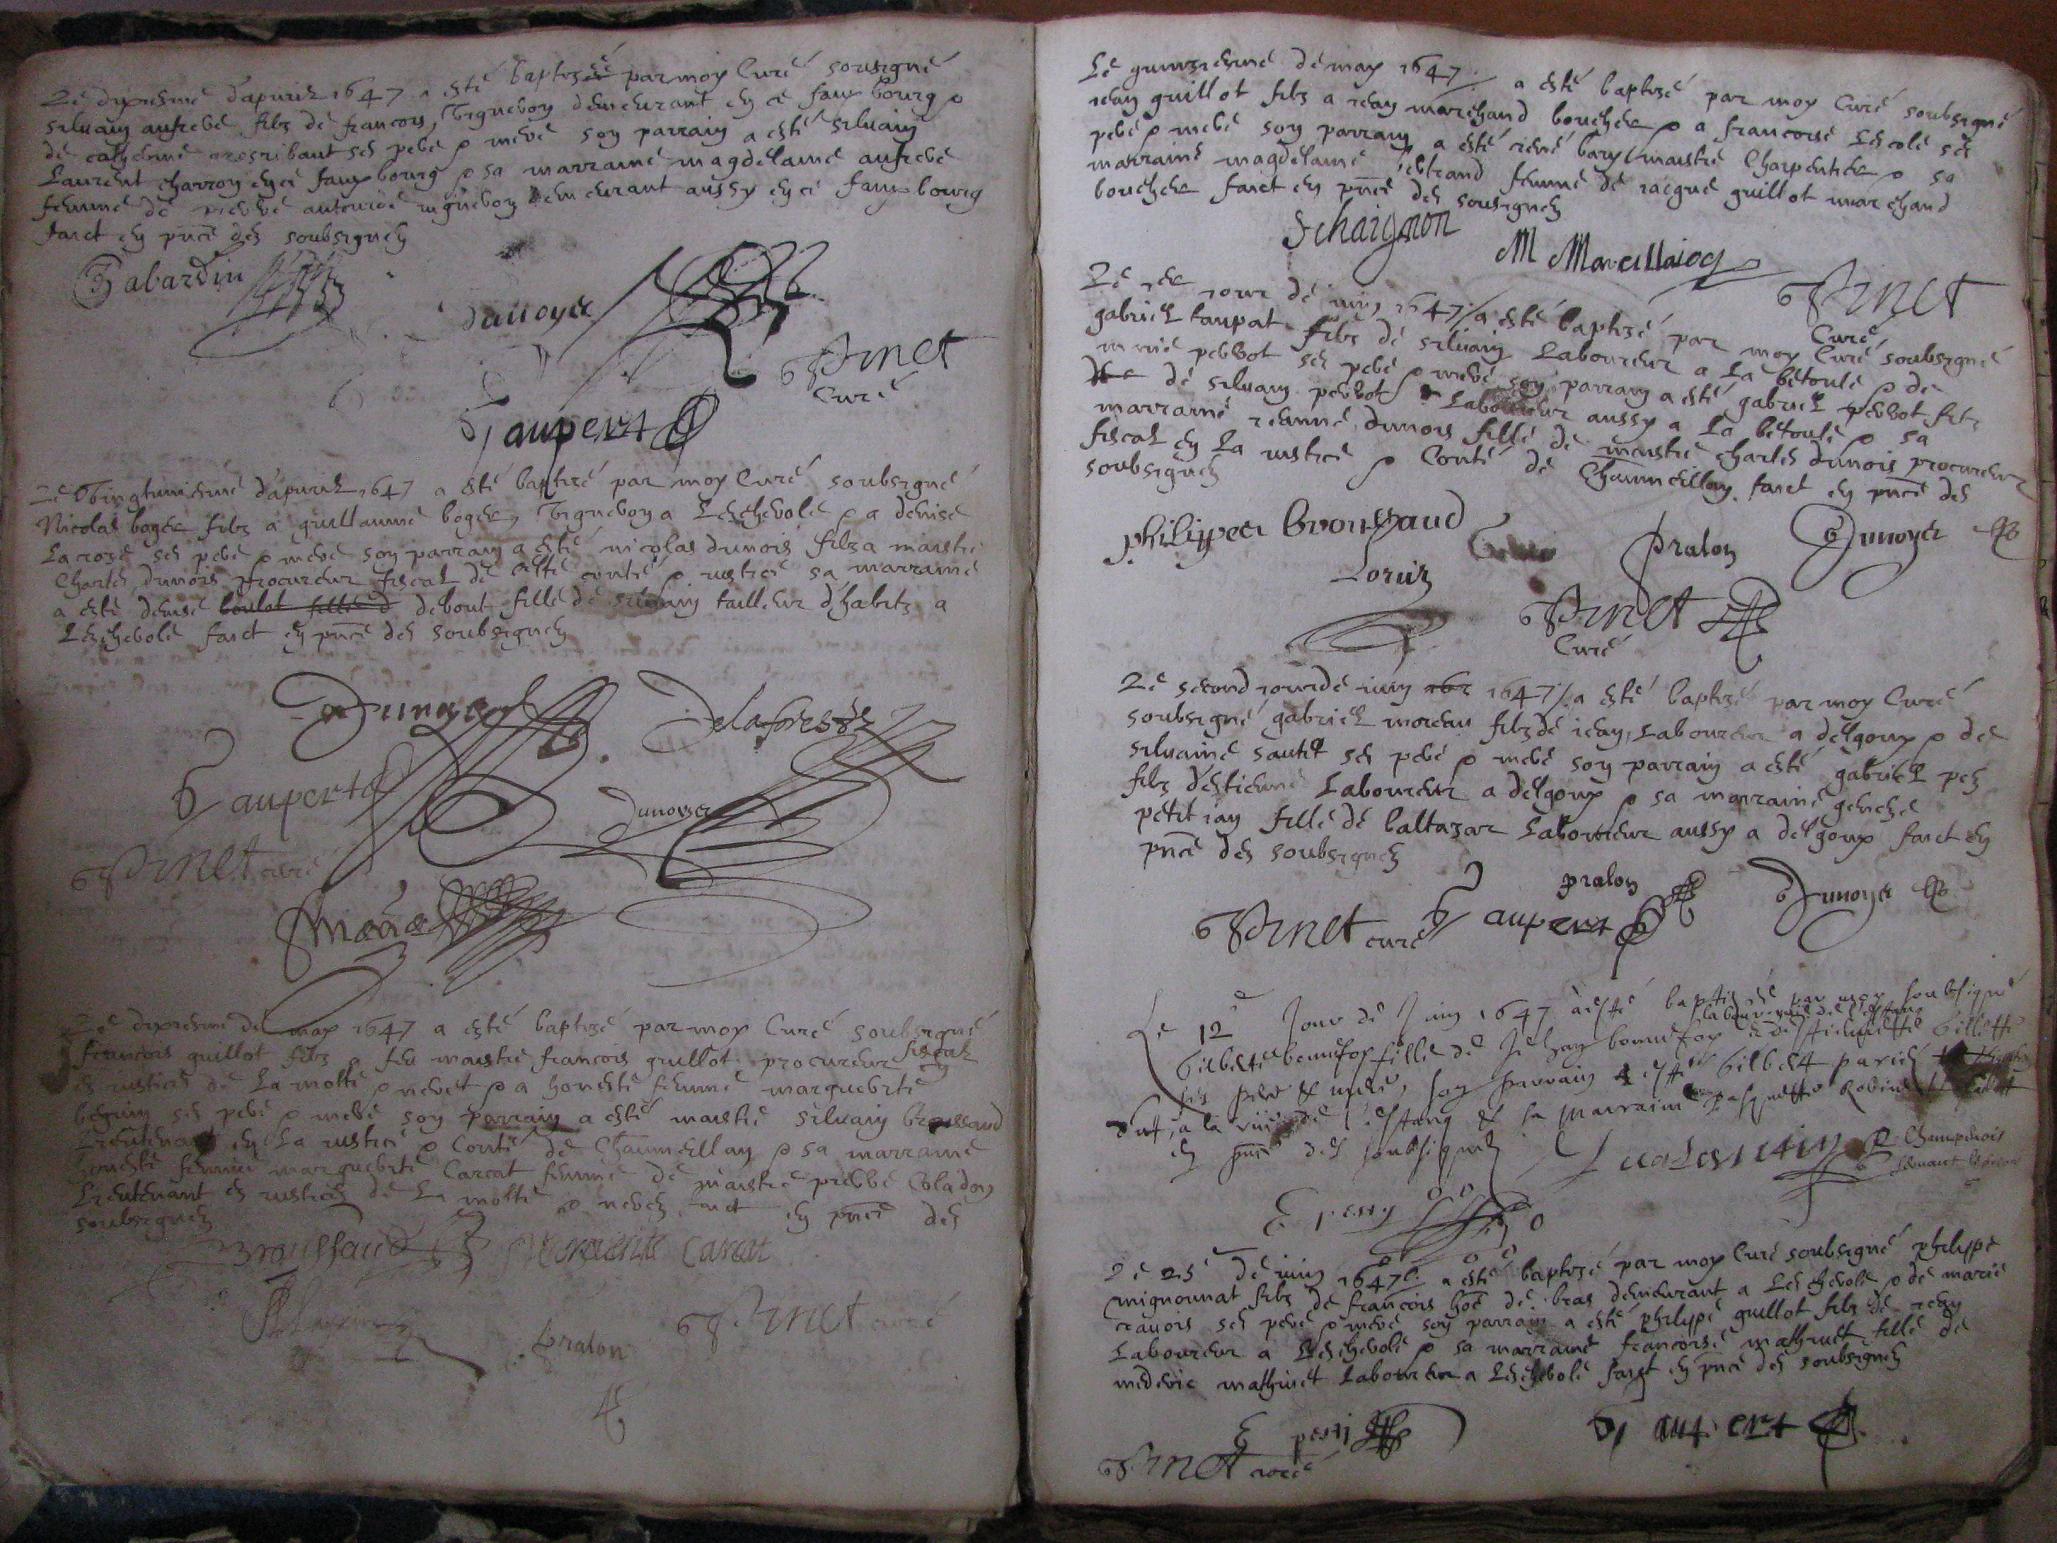 Le dixiesme dapuril 1647 a esté baptizé par moy Curé soubsigné
siluain aufrere filz de francois, Vigneron demeurant en ce faux bourg &
de catherine ses pere & mere son parrain a esté siluain
Laurent charron en ce faux bourg & sa marraine magdelaine aufrere
femme de pierre vigneron demeurant aussy en ce faux bourg
faict en pnce des soubsignez
Tabardin
dunoyer
Pinet
Curé
Taupert
Le Vingtuniesme dapuril 1647 a esté baptizé par moy Curé soubsigné
Nicolas boger filz a guillaume boger, Vigneron a Lescherolle & a denise
La roze ses pere & mere son parrain a esté nicolas dunois filz a maistre
Charles dunois procureur fiscal de ceste conté & iustice sa marraine
a esté denise boulot fille d debout fille de siluain tailleur d'habitz a
Leschevole faict en pnce des soubsignez
Dunoyer
Delafresse
Taupert
dunoyer
Pinet curé
Le dixiesme de may 1647 a esté baptizé par moy Curé soubsigné
francois guillot filz a feu maistre francois guillot procureur fiscal
es iustices de La motte & nevet & a honeste femme marguerite
beguin ses pere & mere son parrain a esté maistre siluain broussaud
Lieutenant en La iustice & Conté de Chaumeillan & sa marraine
honeste femme marguerite Carcat femme de maistre pierre Coladon
Lieutenant es iustices de La motte & nevez faict en pnce des
soubsignez
Broussaud Marguerite Carcat
pralon
Pinet curé
Le quinziesme de may 1647 a esté baptizé par moy Curé soubsigné
iean guillot filz a iean marchand boucher & a francoise Lescole ses
pere & mere son parrain a esté rené bary maistre Charpentier & sa
marraine magdelaine bertrand femme de iacque guillot marchand
boucher faict en pnce des soubsignez
F chaignon
M Marcillaiog
Pinet
Curé
Le 1er iour de iuin 1647 a esté baptizé par moy Curé soubsigné
gabriel taupat filz de siluain Laboureur a La betoulle & de
marie perrot ses pere & mere son parrain a esté gabriel perrot filz
de siluain perrot Laboureur aussy a La betoulle & sa
marraine ieanne dunois fille de maistre charles dunois procureur
fiscal en La iustice & Conté de Chaumeillan faict en pnce des
soubsignez
philippes broussaud
pralon
Dunoyer
Loruin
Pinet
Curé
Le second iour de iuin 164 1647 a esté baptizé par moy Curé
soubsigné gabriel moreau filz de iean, Laboureur a delgoux & de
siluaine sautet ses pere & mere son parrain a esté gabriel pez
filz destienne Laboureur a delgoux & sa marraine
petit ian fille de baltazar Laboureur aussy a delgoux faict en
pnce des soubsignez
pralon
Dunoyer
Pinet curé Taupert
Le 12e Jour de Juin 1647 a esté baptizée par moy soubsigné
Gilberte bonnefoy fille de Jehan bonnefoy & destiennette Gillette
ses pere & mere, son parrain a esté Gilbert
de lestang & sa marraine pasquette
en pnce des soubsignez
E pesty
Le 25e de iuin 1647 a esté baptizé par moy Curé soubsigné philippe
mignonnat filz de francois home de bras demeurant a Leschevole & de marie
ses pere & mere son parrain a esté philippe guillot filz de iean
Laboureur a Leschevole & sa marraine francoise mathivet fille de
mederic mathivet Laboureur a Leschevole faict en pnce des soubsignez
E pesty
Taupert
Pinet curé